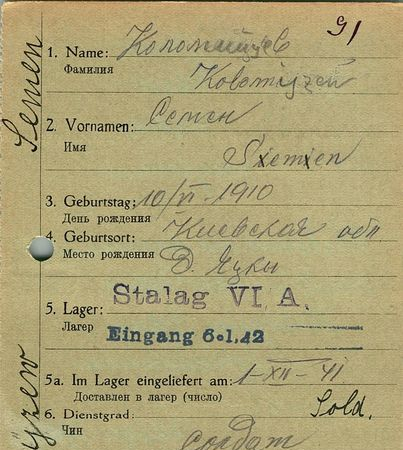 91
1. Name: Коломийцев
Фамилия
Kolomijzew
2. Vornamen: Семен
Имя
Siemien
3. Geburtstag: 10/VI-1910
День рождения
4. Geburtsort: Киевская обл
Место рождения
Д. Яцки
5. Lager: Stalag VI A.
Лагер
Eingang 6.1.42
5a. Im Lager eingeliefert am: 1-XII-41
Доставлен в лагер (число)
6. Dienstgrad: Sold.
Чин
Солдат
Semen